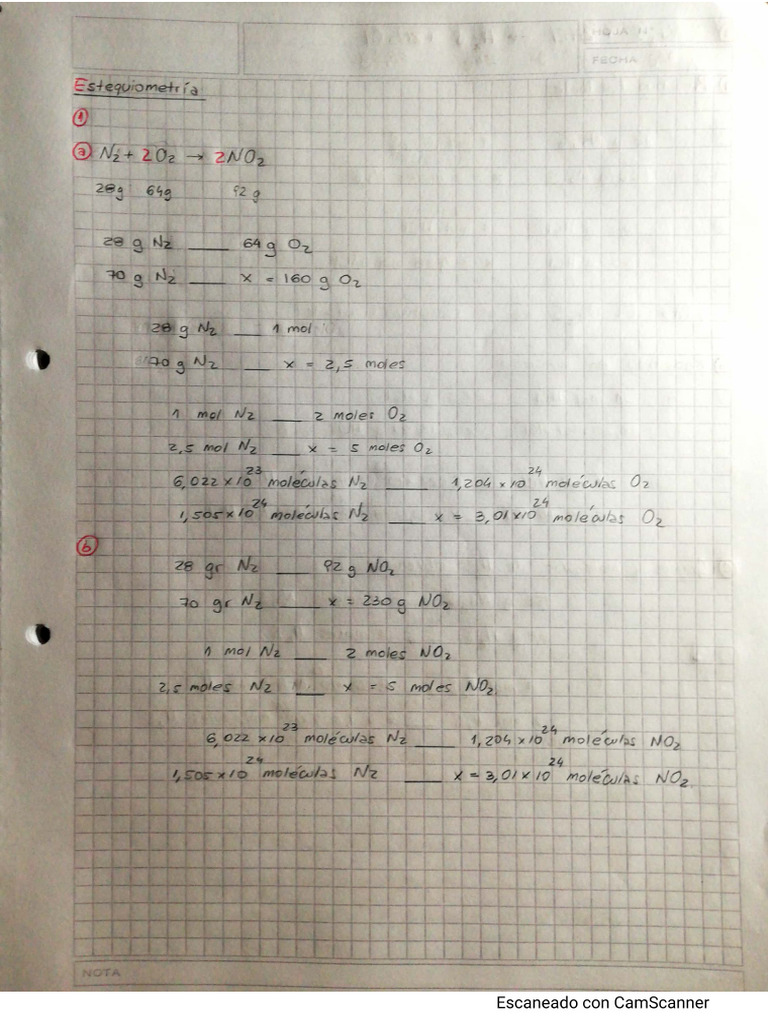 HOJA N°
FECHA
Estequiometría
1
a N2 + 2O2 → 2NO2
28g 64g 92 g
28 g N2 ___ 64 g O2
70 g N2 ___ x = 160 g O2
28 g N2 ___ 1 mol
70 g N2 ___ x = 2,5 moles
1 mol N2 ___ 2 moles O2
2,5 mol N2 ___ x = 5 moles O2
6,022 x 10^23 moléculas N2 ___ 1,204 x 10^24 moléculas O2
1,505 x 10^24 moléculas N2 ___ x = 3,01 x 10^24 moléculas O2
b
28 gr N2 ___ 92 g NO2
70 gr N2 ___ x = 230 g NO2
1 mol N2 ___ 2 moles NO2
2,5 moles N2 ___ x = 5 moles NO2
6,022 x 10^23 moléculas N2 ___ 1,204 x 10^24 moléculas NO2
1,505 x 10^24 moléculas N2 ___ x = 3,01 x 10^24 moléculas NO2
NOTA
Escaneado con CamScanner